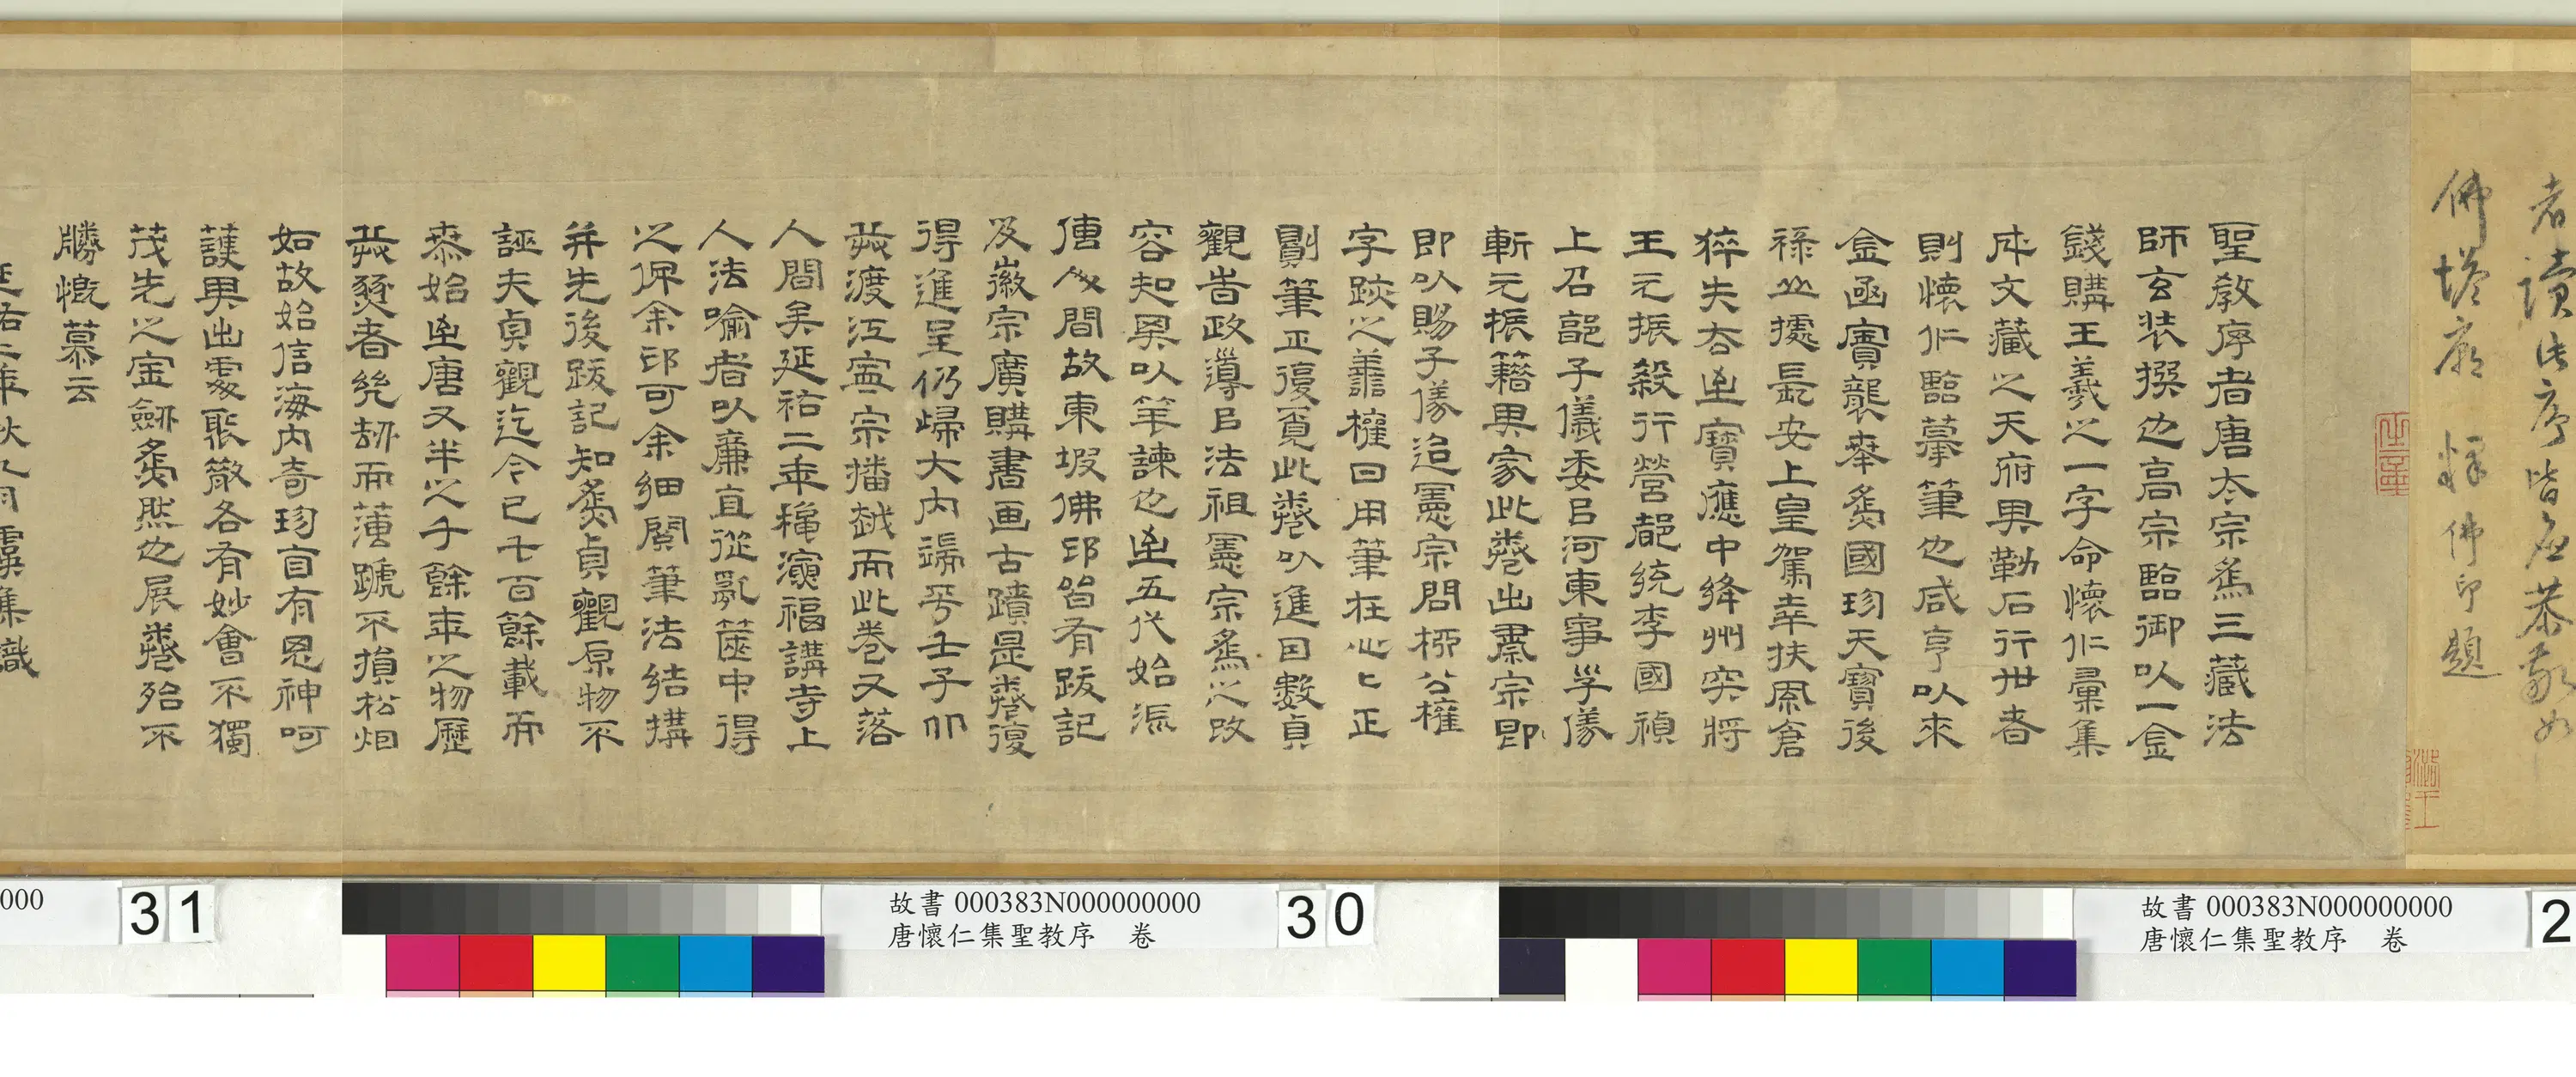 者讀此序皆應恭敬如
佛塔廟 釋佛印題
聖教序者唐太宗為三藏法
師玄裝撰也高宗臨御以一金
錢購王羲之一字命懷仁彙集
成文藏之天府與勒石行世者
則懷仁臨摹筆也咸亨以來
金函寶襲奉為國珍天寶後
祿山據長安上皇駕幸扶風倉
猝失去至寶應中絳州突將
王元振殺行營都統李國禎
上召郭子儀委㠯河東事子儀
斬元振籍其家此卷出肅宗即
即以賜子儀迨憲宗問柳公權
字跡之善權曰用筆在心心正
則筆正復覓此卷以進因數貞
觀旹政導㠯法祖憲宗為之改
容知其以筆諫也至五代始流
傳人間故東坡佛印皆有跋記
及徽宗廣購書画古蹟是卷復
得進呈仍歸大内端平壬子
茲渡江寧宗播越而此卷又落
人間矣延祐二年穐演福講寺上
人法喻者以廉直從亂篋中得
之保余邸可余細閱筆法結搆
并先後跋記知為貞觀原物不
誣夫貞觀迄今已七百餘載而
泰始至唐又半之千餘年之物歷
茲燹者幾刧而蕅號不損松烟
如故始信海内奇珍自有鬼神呵
護其出處聚散各有妙會不獨
茂先之寶劒為然也展卷殆不
勝慨慕云
延祐二年秋九月虞集識
000
31
故書 000383N000000000
唐懷仁集聖教序 卷
30
故書 000383N000000000
唐懷仁集聖教序 卷
2